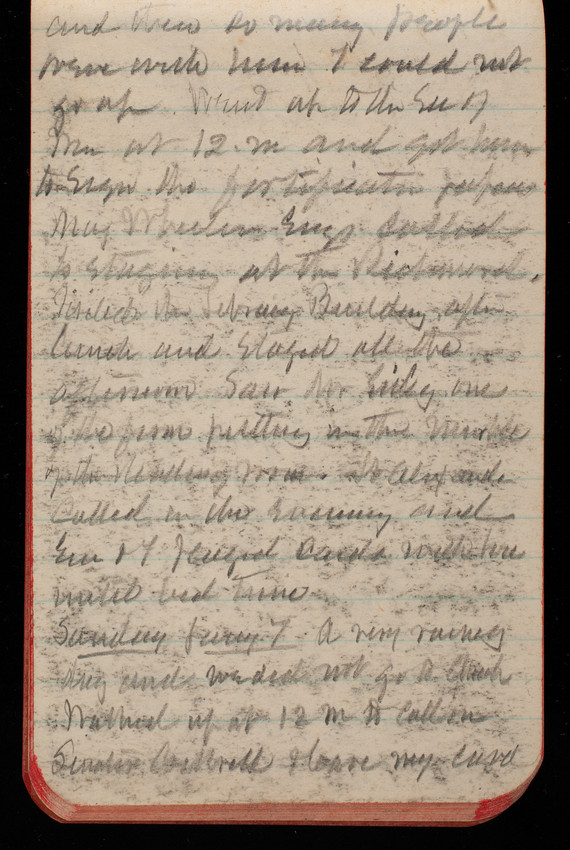 and there so many people
were with him I could not
go up. Went up to the Sec of
War at 12 m and got him
to sign the fortification papers
Maj Wheeler Engs called
is staying at the Richmond.
Visited the Library Building after
lunch and stayed all the
afternoon Saw Mr one
of the firm putting in the marble
of the Reading room.
Called in the evening and
Em & I played cards with him
until bed time
Sunday Jany 7 A very rainy
day and we did not go to church
Walked up at 12 m to call on
Senator & leave my card